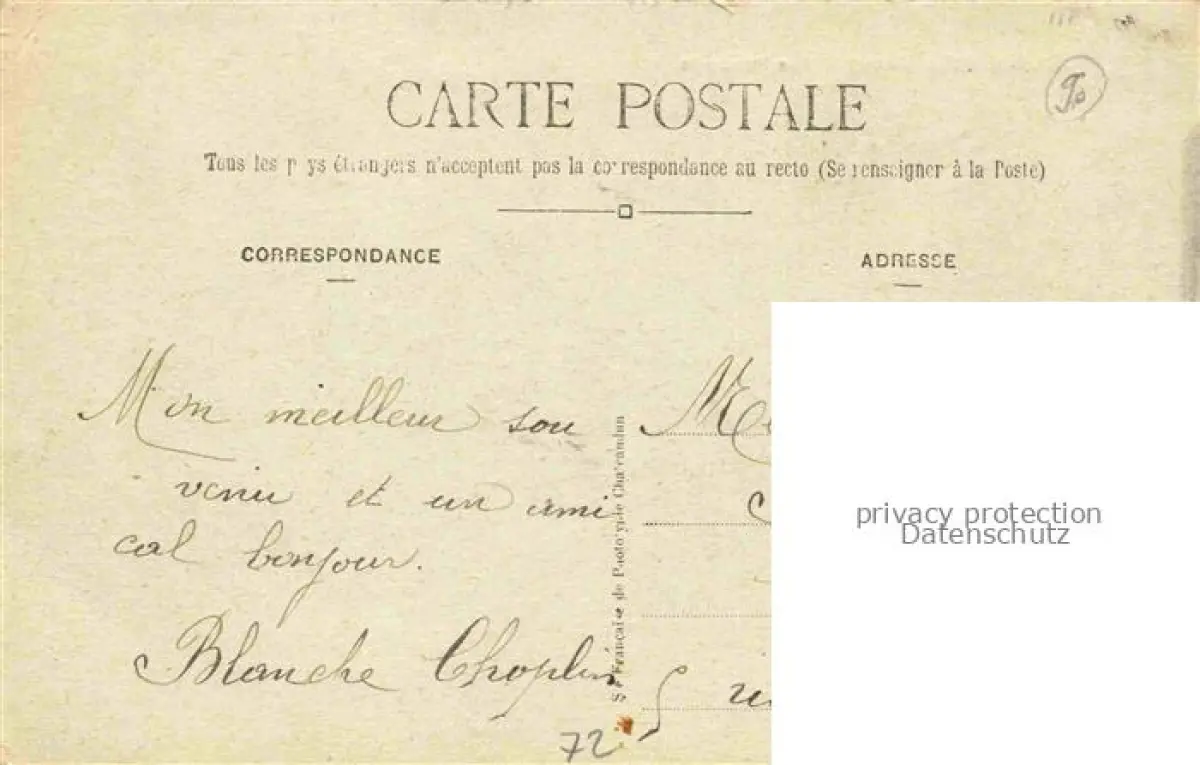 CARTE POSTALE
Tous les pays étrangers n'acceptent pas la correspondance au recto (Se renseigner à la Poste)
CORRESPONDANCE
ADRESSE
Mon meilleur sou
venir et un ami
cal bonjour.
Blanche Choplin
72
Sté Française de Phototypie Châteaudun
privacy protection
Datenschutz